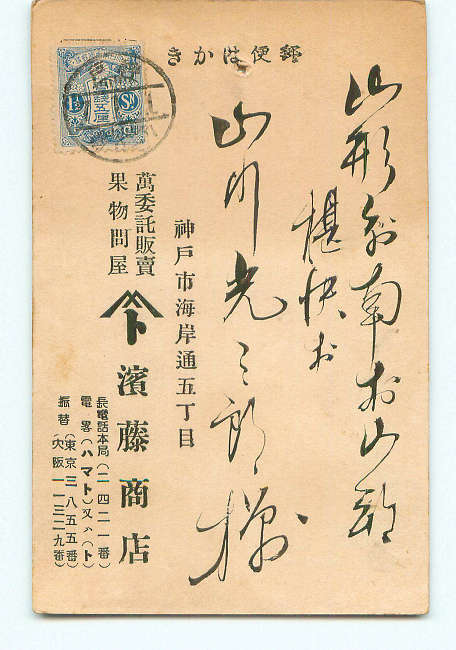 きかは便郵
山形縣南村山郡
堪快村
山川光三郎様
神戸市海岸通五丁目
萬委託販賣
果物問屋
ト
濱藤商店
長電話本局(二四二一番)
電畧(ハマト)又ハ(ト)
振替(東京三八五五番)
(大阪一一三二九番)
1½ Sn